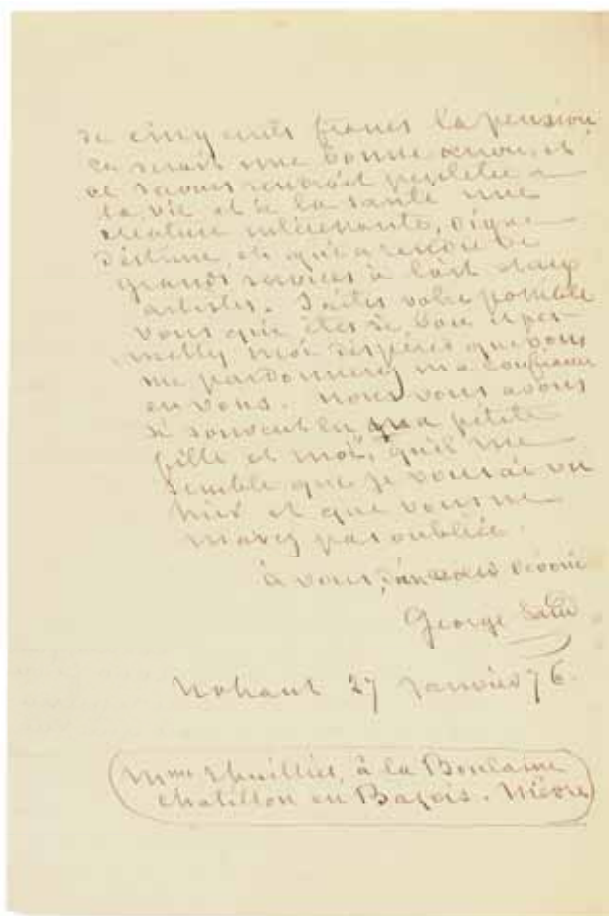 de cinq cents francs la pension,
ça serait une bonne œuvre, et
ce secours rendrait peutêtre
la vie et à la santé une
créature intéressante, digne
d'estime et qui a rendu de
grands services à l'art et aux
artistes. Faites votre possible
vous qui êtes si bon et per
mettez moi d'espérer que vous
me pardonnerez ma confiance
en vous. nous vous avons
si souvent lu, ma petite
fille et moi, qu'il me
semble que je vous ai vu
hier et que vous ne
m'avez pas oubliée.
à vous, dévoué
George Sand
Nohant 27 janvier 76.
Mme à la Boulaine
chatillon en Bazois. Nièvre